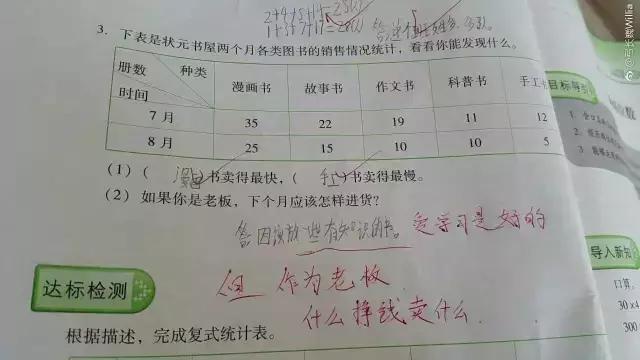 3. 下表是状元书屋两个月各类图书的销售情况统计，看看你能发现什么。
册数 种类 时间 漫画书 故事书 作文书 科普书 手工
7月 35 22 19 11 12
8月 25 15 10 10 5
(1) ( 漫画 )书卖得最快，( 手工 )书卖得最慢。
(2) 如果你是老板，下个月应该怎样进货？
答：因该放些有知识的书。
爱学习是好的
但作为老板
什么挣钱卖什么.
达标检测
根据描述，完成复式统计表。
目标导
数
导入新知
口算。
30×4
300